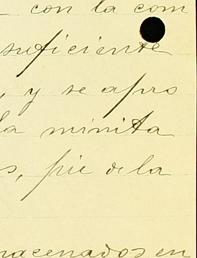 con la com
suficiente
, y se apro
la minita
s, pie de la
macenados en